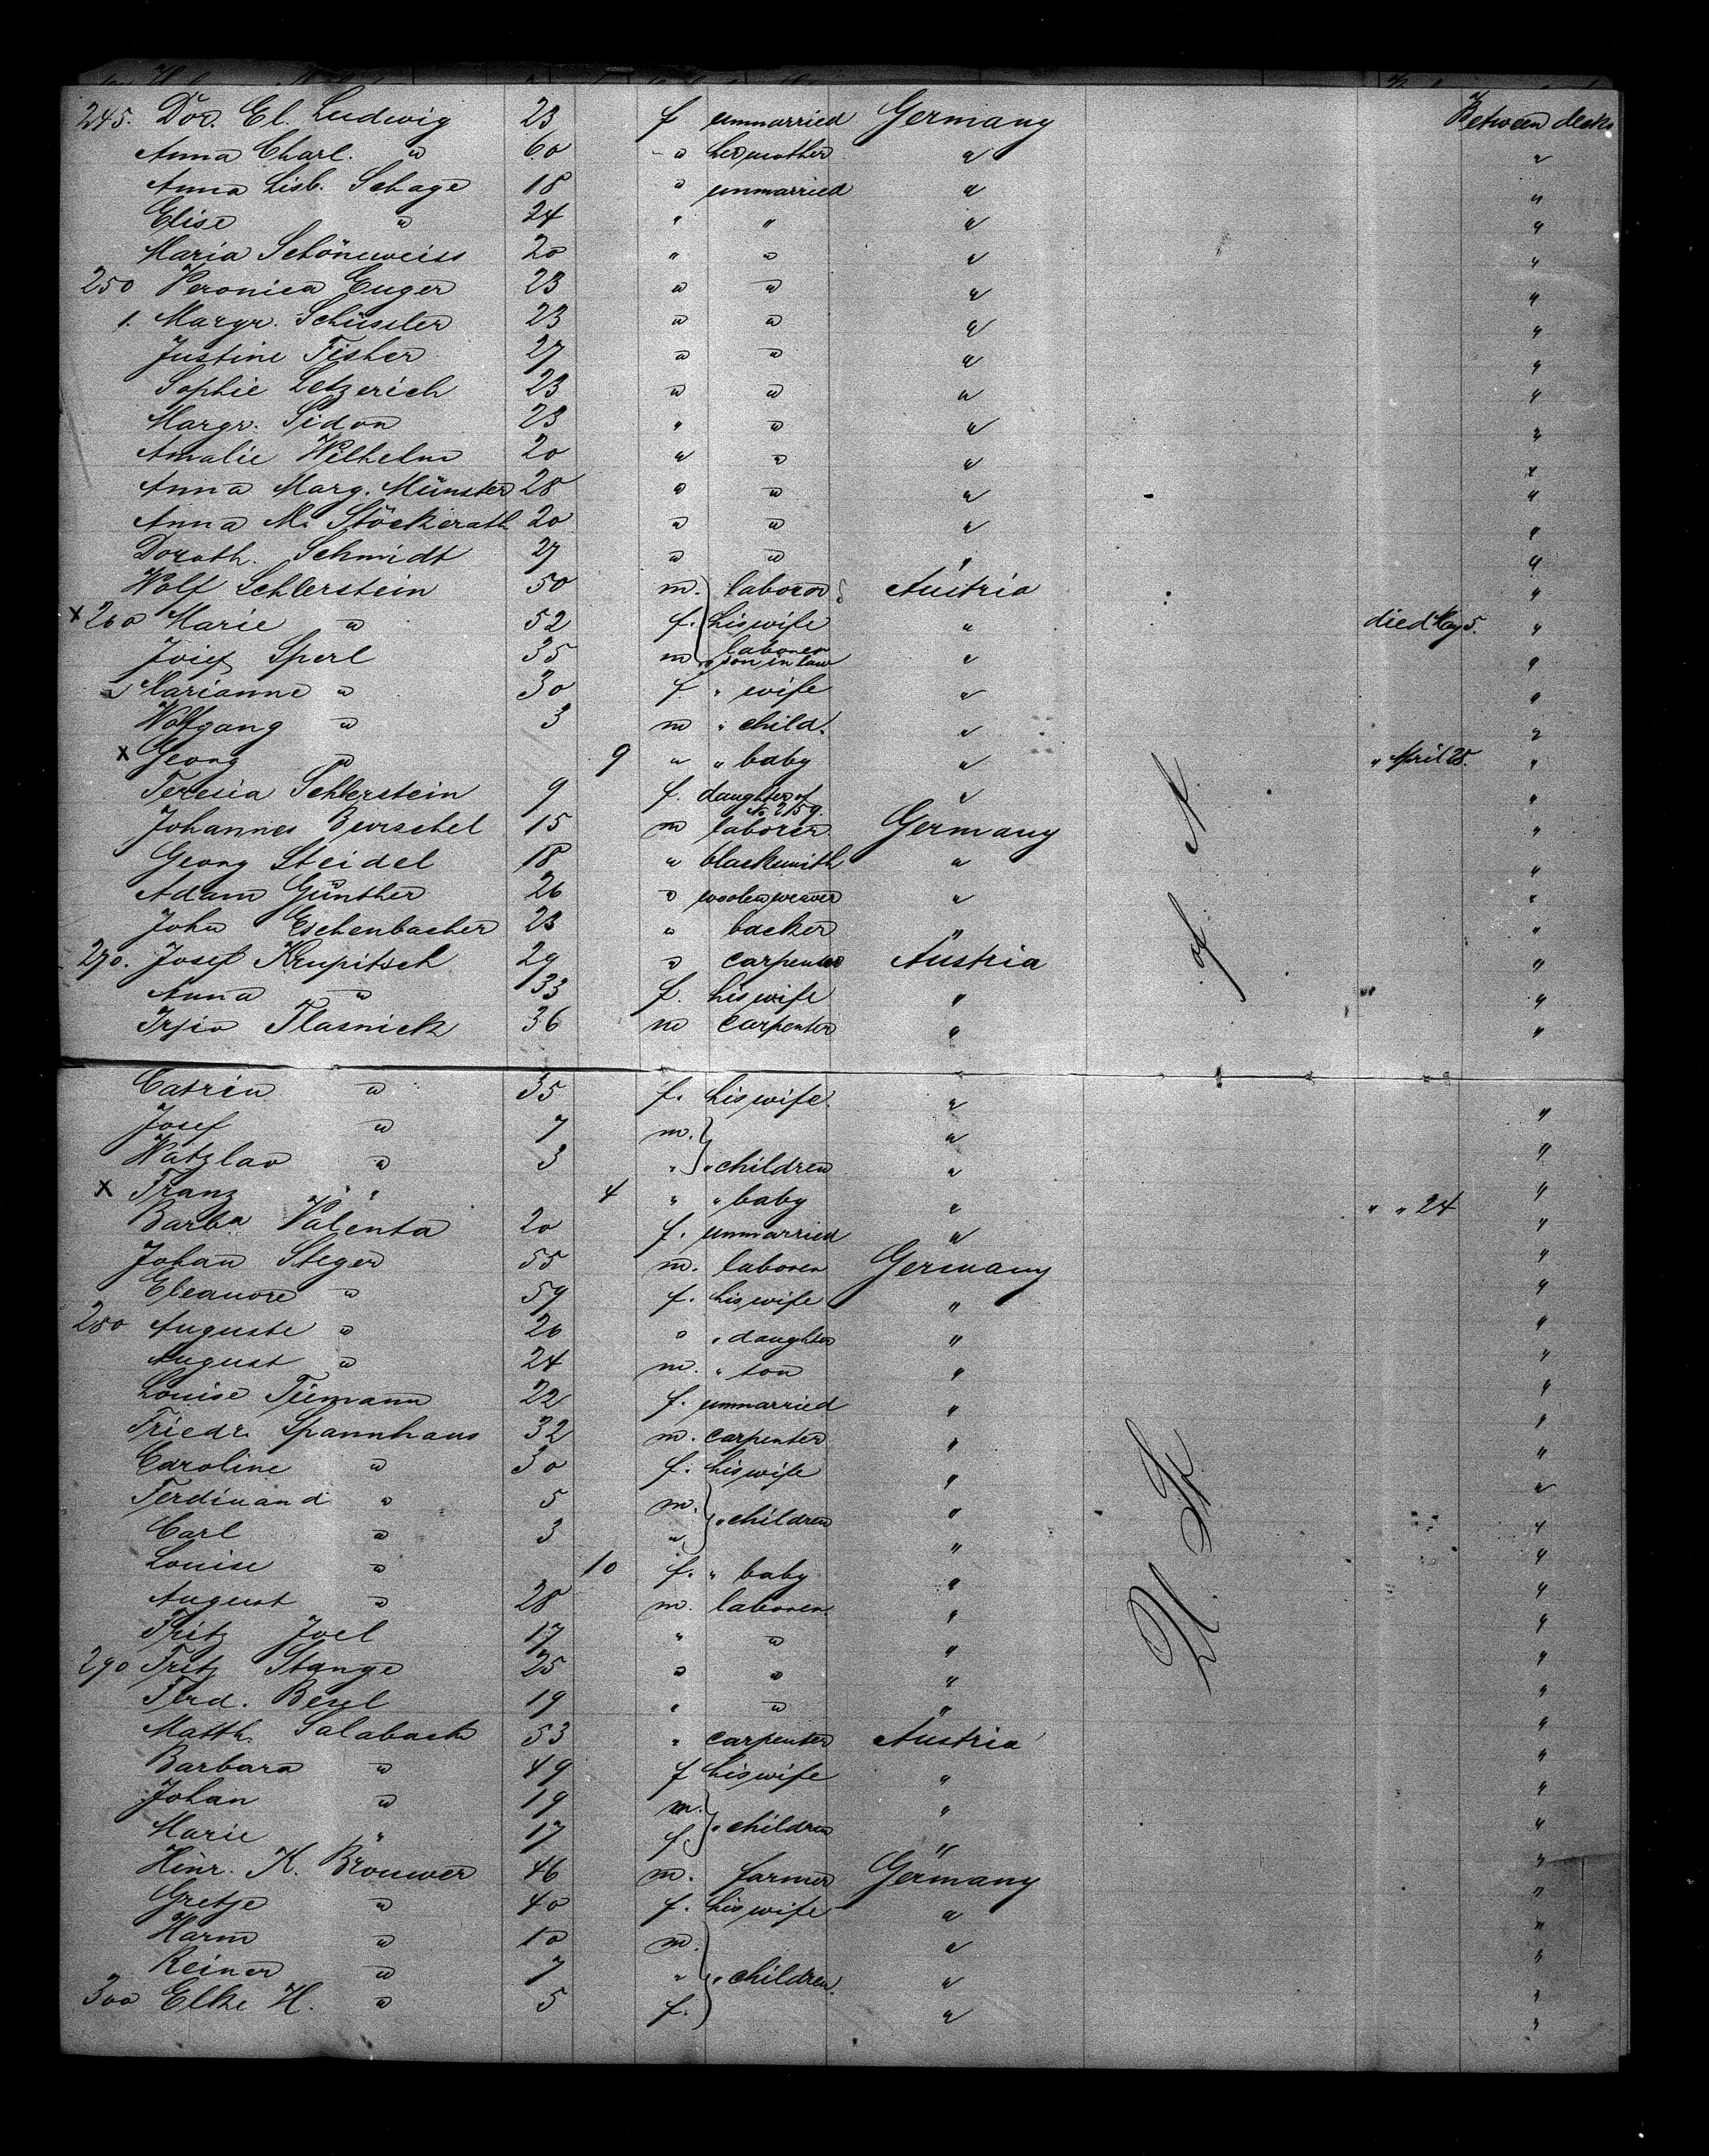 245. Dor. El. Ludwig 23 f unmarried Germany Between decks
Anna Charl. " 60 " her mother " "
Anna Lisb. Schage 18 " unmarried " "
Elise " 24 " " " "
Maria Schöneweiss 20 " " " "
250 Veronica Euger 23 " " " "
1. Margr. Schüssler 23 " " " "
Justine Fisher 27 " " " "
Sophie Letzerich 23 " " " "
Margr. Sidon 23 " " " "
Amalie Wilhelm 20 " " " "
Anna Marg. Münster 28 " " " "
Anna M. Stöckerath 20 " " " "
Doroth. Schmidt 27 " " " "
Wolf Schlerstein 50 m. laborer Austria "
x 260 Marie " 52 f. his wife " died May 5. "
Josef Sperl 35 m laborer " son in law " "
Marianne " 30 f. " wife " "
Wolfgang " 3 m " child. " "
x Georg " 9 " " baby " " April 28. "
Teresia Schlerstein 9 f. daughter of No 259. " "
Johannes Burschel 15 m laborer Germany "
Georg Steidel 18 " blacksmith " "
Adam Günther 26 " woolenweaver " "
John Eschenbacher 23 " backer " "
270. Josef Krupitsch 29 " carpenter Austria "
Anna " 33 f. his wife " "
Flasnick 36 m carpenter " "
Catrin " 35 f. his wife. " "
Josef " 7 m. " "
Watzlav " 3 " " children " "
x Franz " 4 " " baby " " " 24 "
Barba Valenta 20 f. unmarried " "
Johan Steger 55 m. laborer Germany "
Eleanore " 59 f. his wife " "
280 Auguste " 26 " " daughter " "
August " 24 m. " son " "
Louise Tiemann 22 f. unmarried " "
Friedr. Spannhaus 32 m. carpenter " "
Caroline " 30 f. his wife " "
Ferdinand " 5 m. " "
Carl " 3 " " children " "
Louise " 10 f. " baby " "
August " 28 m. laborer. " "
Fritz Joel 17 " " " "
290 Fritz Stange 25 " " " "
Ferd. Besel 19 " " " "
Matth. Salaback 53 " carpenter Austria "
Barbara " 49 f his wife " "
Johan " 19 m. " "
Marie " 17 f. " children " "
Hinr. K. Brouwer 46 m. farmer Germany "
Gretje " 40 f. his wife " "
Harm " 10 m. " "
Reiner " 7 " " children. " "
300 Elke H. " 5 f. " "
U. St. of A.